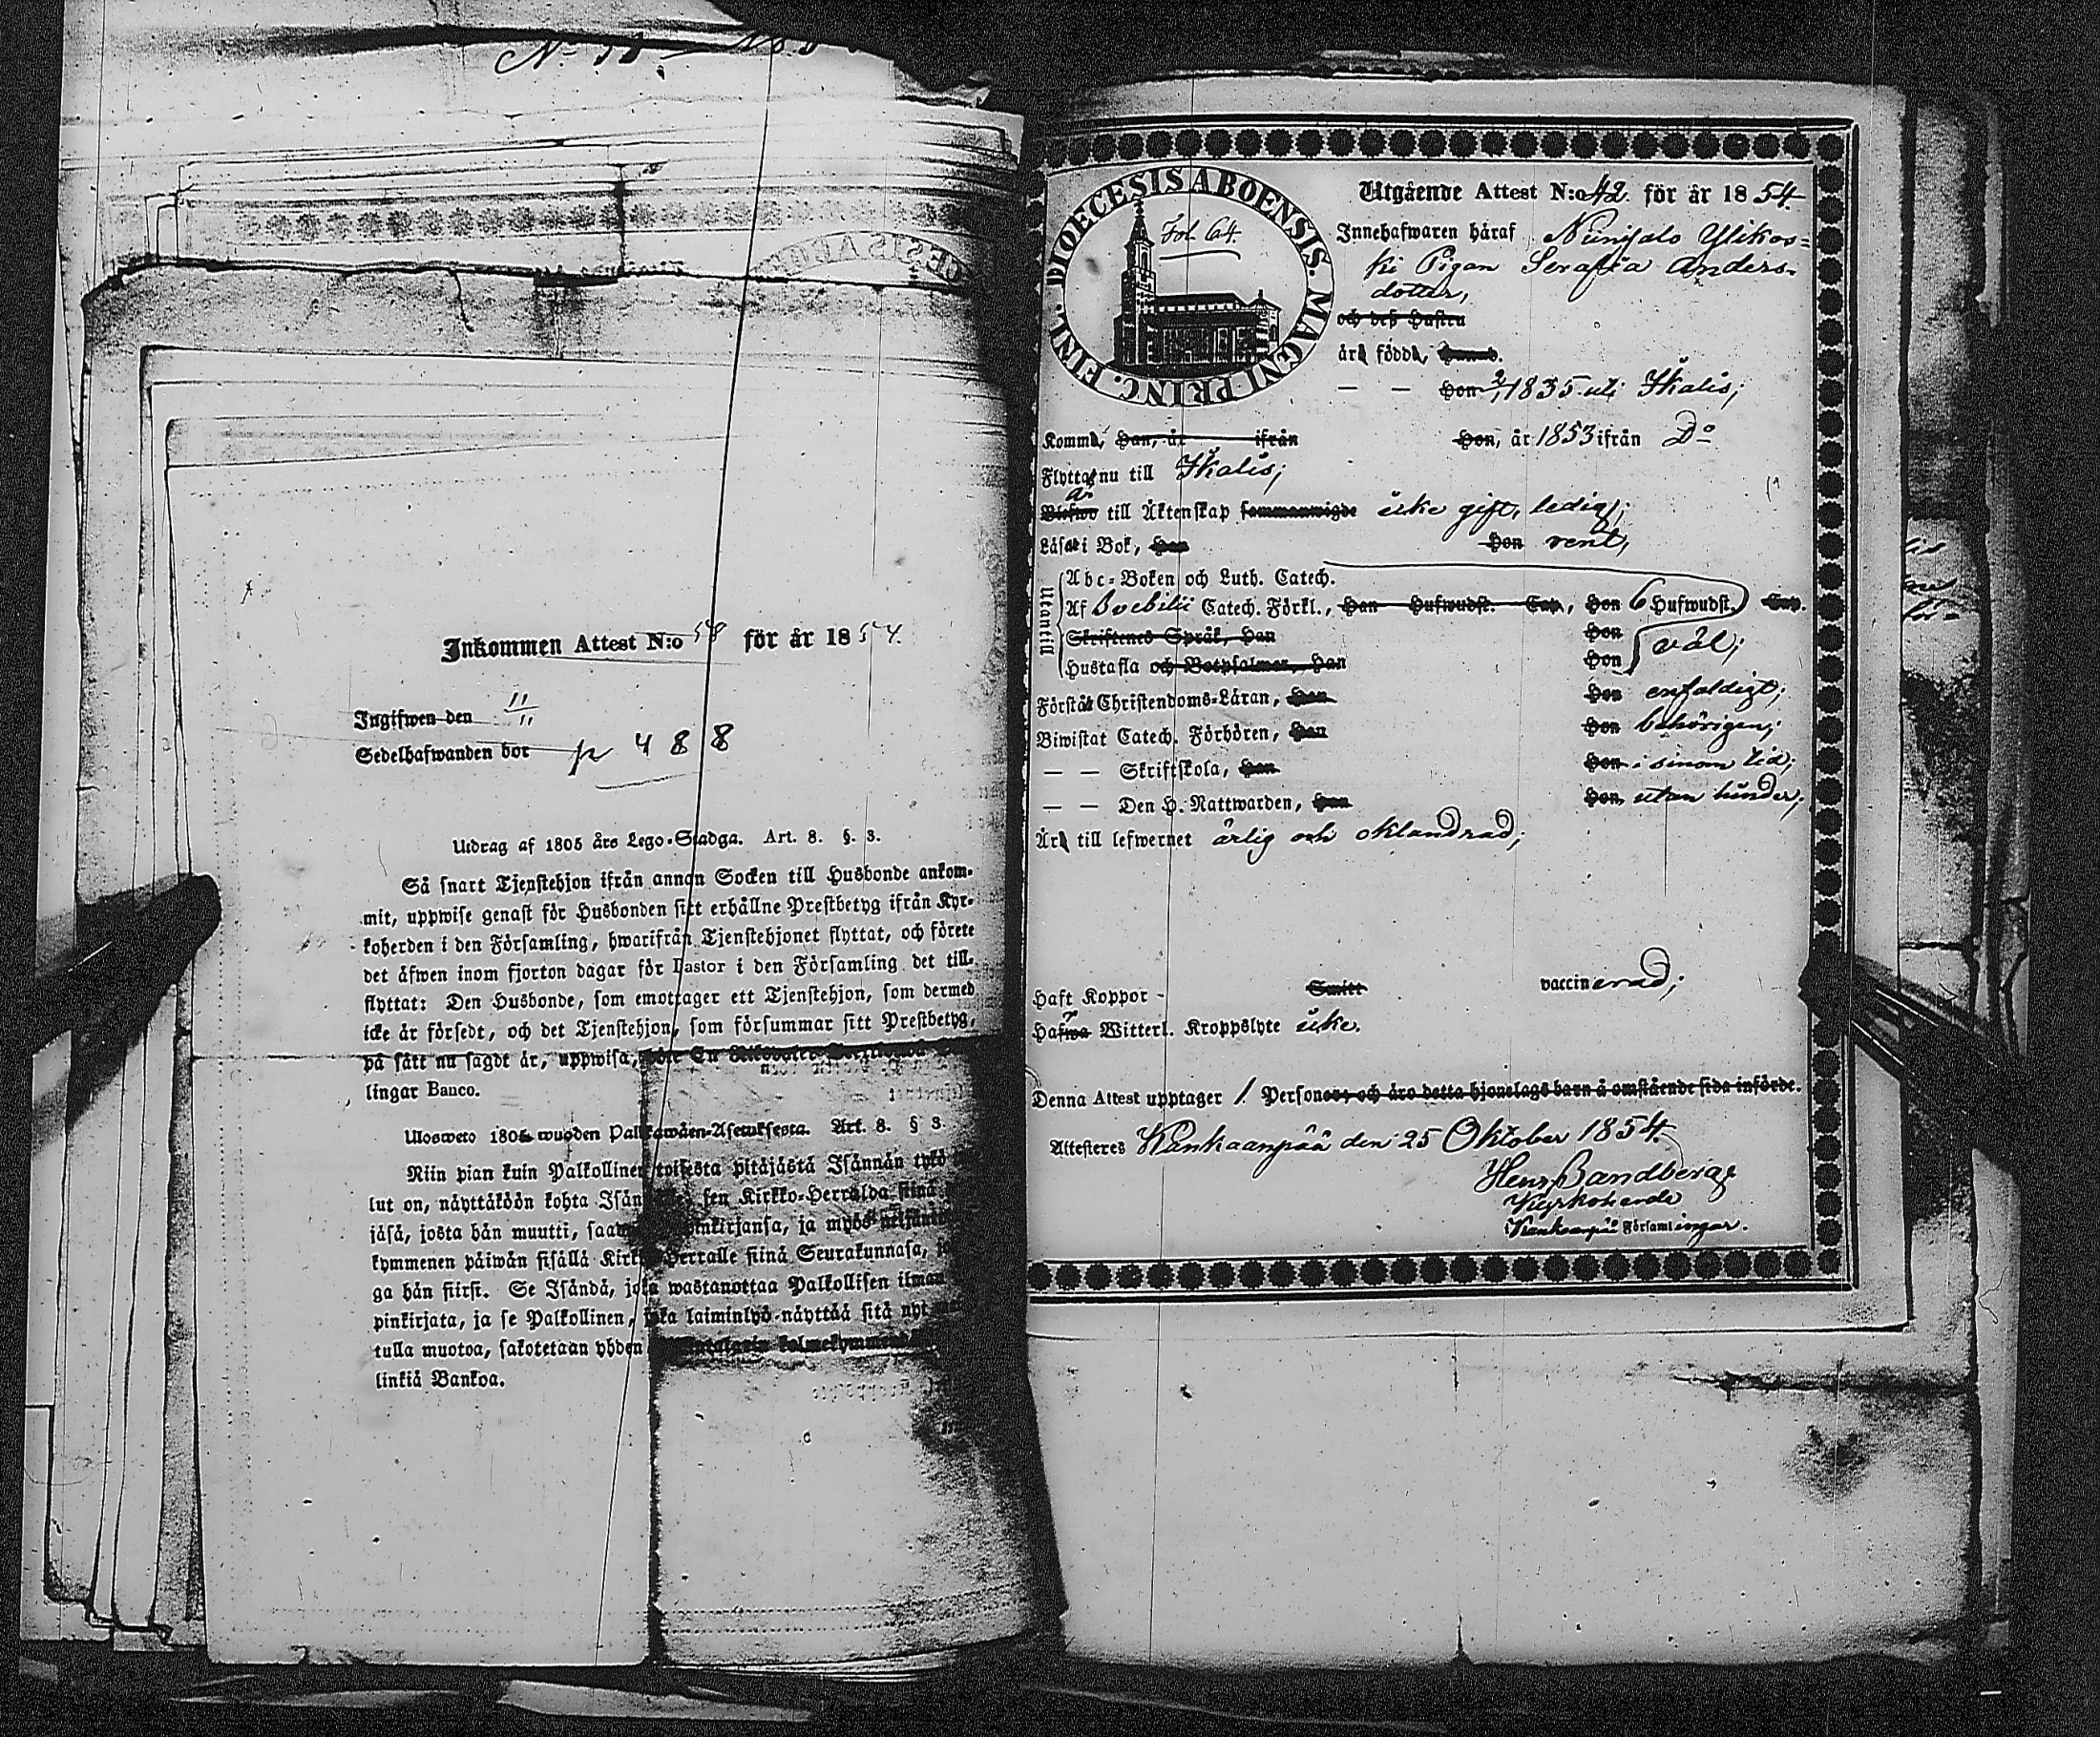 Inkommen Attest N:o 58 för år 1854.
Ingifwen den 11/11
Sedelhafwanden bor p 488
Utdrag af 1805 års Lego-Stadga. Art. 8. §. 3.
Så snart Tjenstehjon ifrån annan Socken till Husbonde ankom-
mit, uppwise genast för Husbonden sitt erhållne Prestbetyg ifrån Kyr-
koherden i den Församling, hwarifrån Tjenstehjonet flyttat, och förete
det äfwen inom fjorton dagar för Pastor i den Församling det till-
flyttat: Den Husbonde, som emottager ett Tjenstehjon, som dermed
icke är försedt, och det Tjenstehjon, som försummar sitt Prestbetyg,
på sätt nu sagdt är, uppwisa, böte En
lingar Banco.
Ulosweto 1805 wuoden Palkawäen-Asetuksesta. Art. 8. § 3.
Niin pian kuin Palkollinen toisesta pitäjästä Isännän tykö
lut on, näyttäköön kohta Isän sen Kirkko-Herralda siinä
jäsä, josta hän muutti, saa pinkirjansa, ja myös neljän
kymmenen päiwän sisällä Kirkko-Herralle siinä Seurakunnasa, jo
ga hän siirsi. Se Isändä, joka wastanottaa Palkollisen ilman
pinkirjata, ja se Palkollinen, joka laiminlyö näyttää sitä nyt
tulla muotoa, sakotetaan yhden kolmekymmen
linkiä Bankoa.
DIOECESIS ABOENSIS. MAGNI PRINC. FINL.
Fol 64.
Utgående Attest N:o 42. för år 1854.
Innehafwaren häraf Niinisalo Ylikos-
ki Pigan Serafia Anders-
dotter,
och deß Hustru
är född,
— — Hon 2/1 1835 uti Ikalis;
Komm, Han, år ifrån Hon, år 1853 ifrån D:o
Flytta nu till Ikalis;
är
Blefwo till Äktenskap sammanwigde icke gift, ledig;
Läsa i Bok, Han Hon rent,
Utantill
Abc-Boken och Luth. Catech.
Af Svebilii Catech. Förkl., Han Hufwudst. Cap, Hon 6 Hufwudst. Cap.
Skriftenes Språk, Han Hon
Hustafla och Botpsalmer, Han Hon väl;
Förstår Christendoms-Läran, Han Hon enfaldigt;
Biwistat Catech. Förhören, Han Hon behörigen;
— — Skriftskola, Han Hon i sinom tid;
— — Den H. Nattwarden, Han Hon utan hinder;
Är till lefwernet ärlig och oklandrad;
Haft Koppor - Smitt vaccinerad;
Hafwa Witterl. Kroppslyte icke.
Denna Attest upptager 1 Persone, och äro detta hjonelags barn å omstående sida införde.
Attesteras Kankaanpää den 25 Oktober 1854.
Henr Sandberg
Kyrkoherde
Kankaanpää Församlingar.